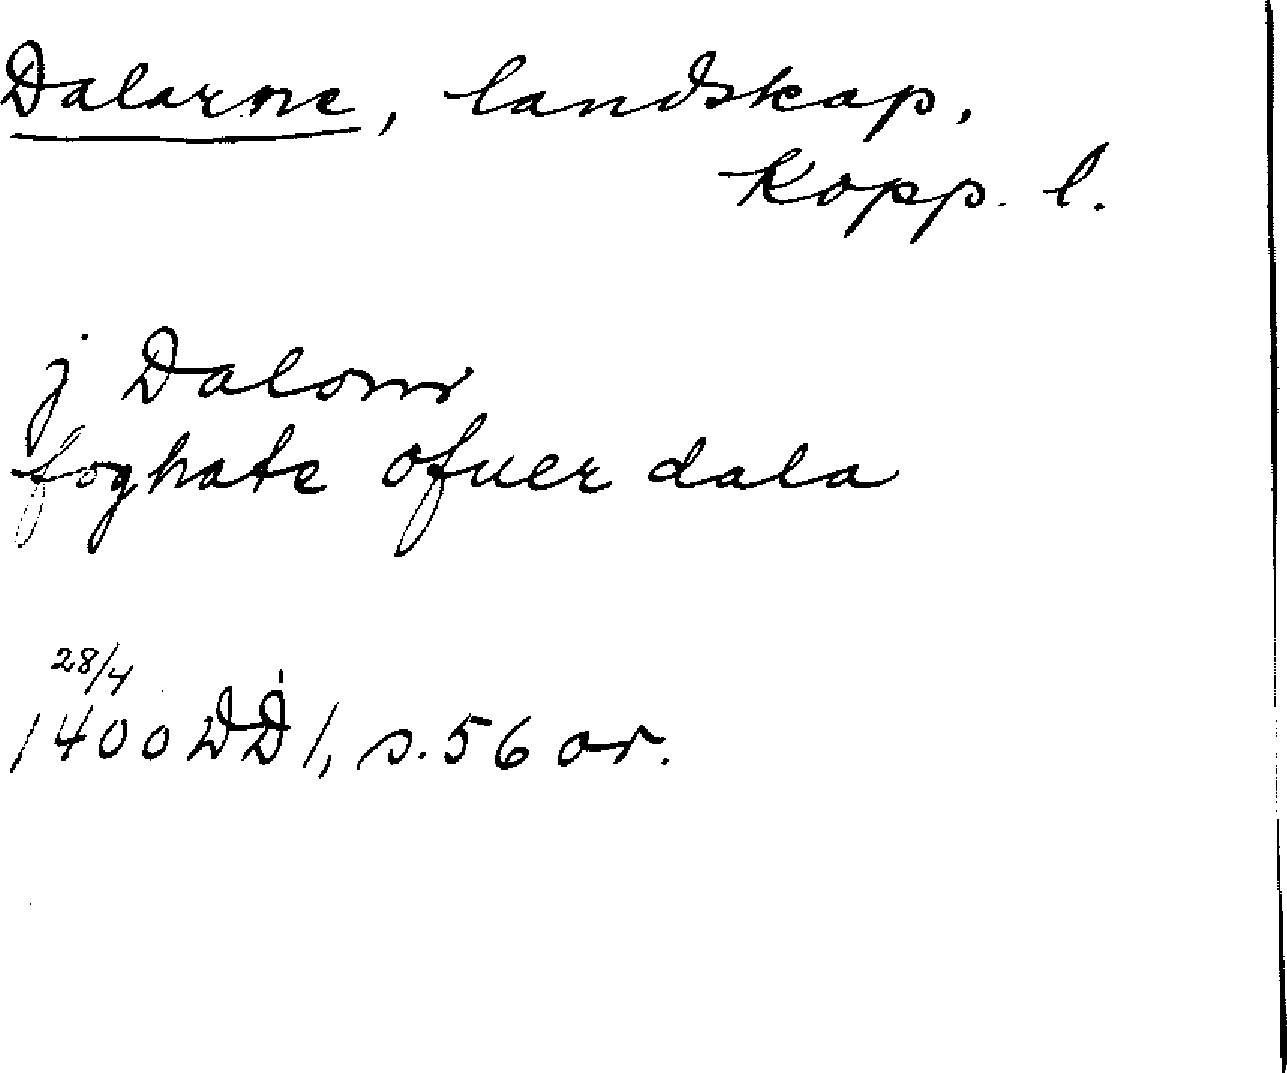 Dalarne, landskap,
Kopp. l.
j Dalom
foghate ofuer dala
28/4
1400 DD 1, s. 56 or.